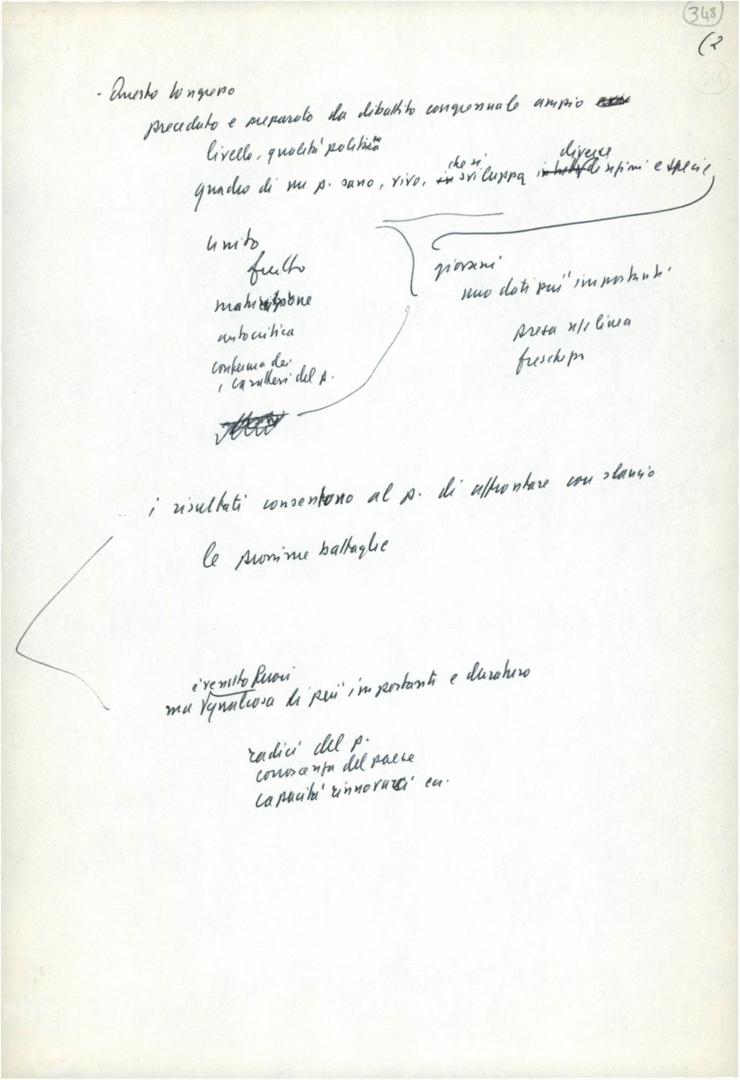 348
(2
- Questo Congresso
preceduto e preparato da dibattito congressuale ampio
livello, qualità politica
quadro di un p. sano, vivo, che si sviluppa diverse e specie
unito
frutto
maturazione
autocritica
conferma dei
caratteri del p.
giovani
uno dati più importanti
presa n/s linea
freschezza
i risultati consentono al p. di affrontare con slancio
le prossime battaglie
è venuto fuori
ma qualcosa di più importante e duraturo
radici del p.
conoscenza del paese
capacità rinnovarci ecc.